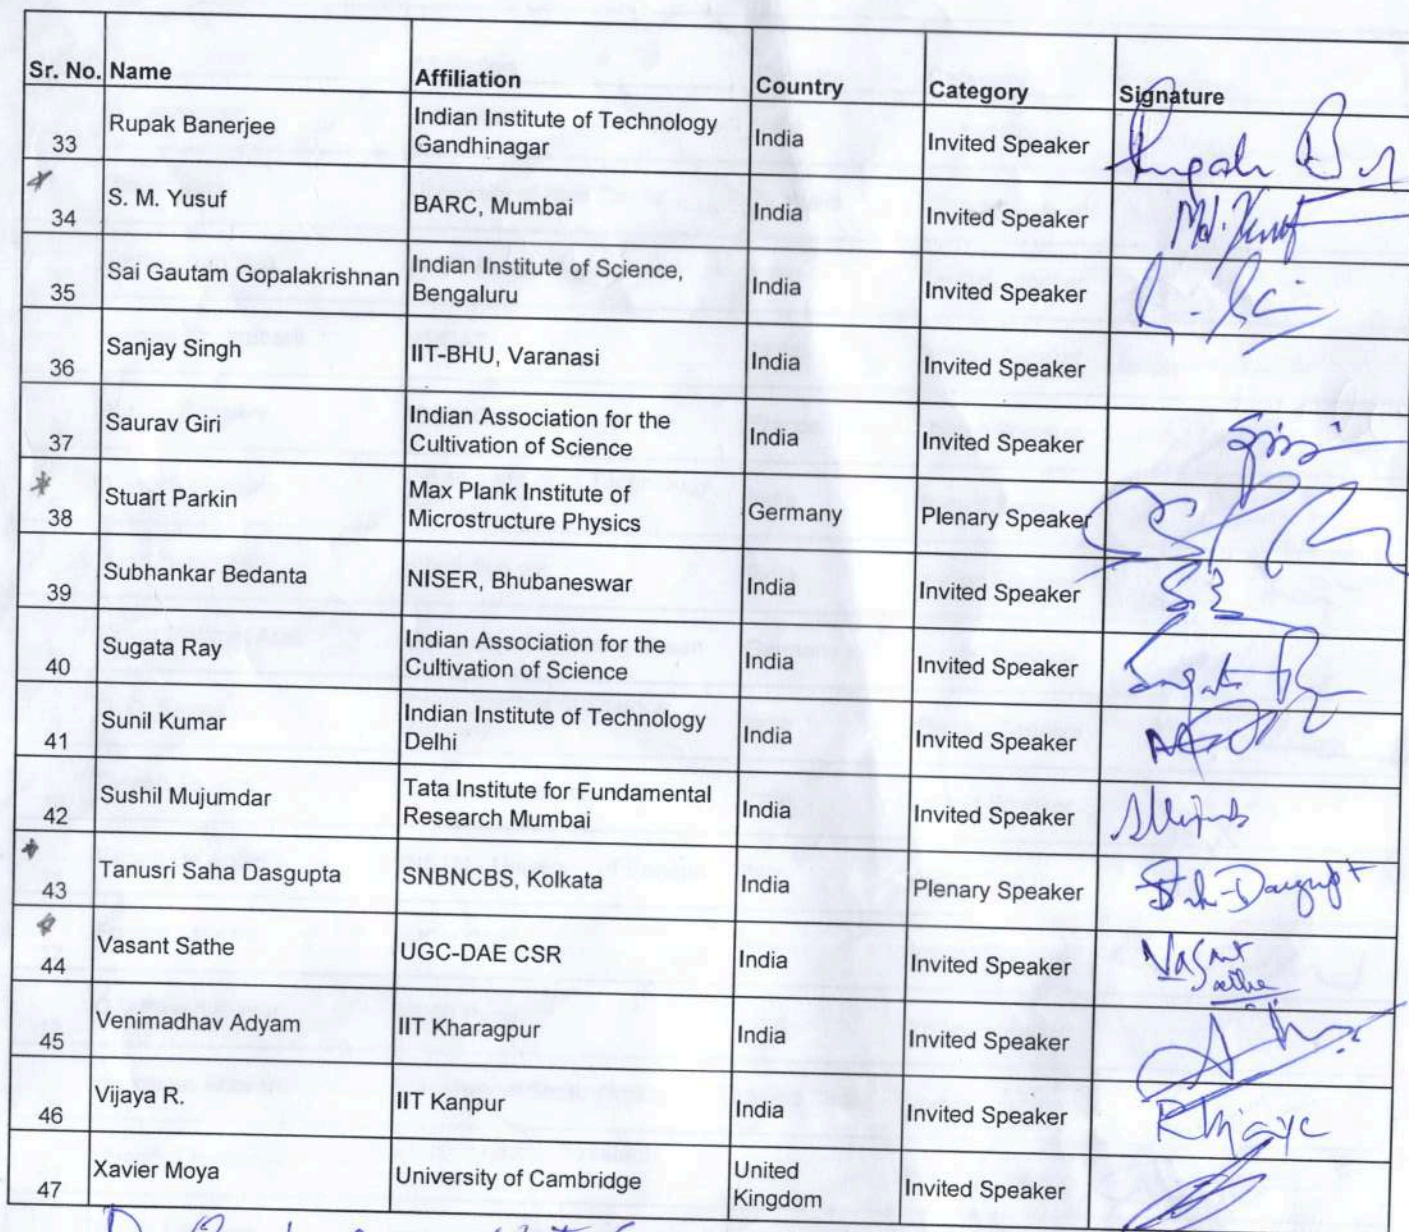 Sr. No. Name Affiliation Country Category Signature
33 Rupak Banerjee Indian Institute of Technology Gandhinagar India Invited Speaker
34 S. M. Yusuf BARC, Mumbai India Invited Speaker Md. Yusuf
35 Sai Gautam Gopalakrishnan Indian Institute of Science, Bengaluru India Invited Speaker
36 Sanjay Singh IIT-BHU, Varanasi India Invited Speaker
37 Saurav Giri Indian Association for the Cultivation of Science India Invited Speaker
38 Stuart Parkin Max Plank Institute of Microstructure Physics Germany Plenary Speaker
39 Subhankar Bedanta NISER, Bhubaneswar India Invited Speaker
40 Sugata Ray Indian Association for the Cultivation of Science India Invited Speaker
41 Sunil Kumar Indian Institute of Technology Delhi India Invited Speaker
42 Sushil Mujumdar Tata Institute for Fundamental Research Mumbai India Invited Speaker
43 Tanusri Saha Dasgupta SNBNCBS, Kolkata India Plenary Speaker
44 Vasant Sathe UGC-DAE CSR India Invited Speaker Vasant Sathe
45 Venimadhav Adyam IIT Kharagpur India Invited Speaker
46 Vijaya R. IIT Kanpur India Invited Speaker
47 Xavier Moya University of Cambridge United Kingdom Invited Speaker